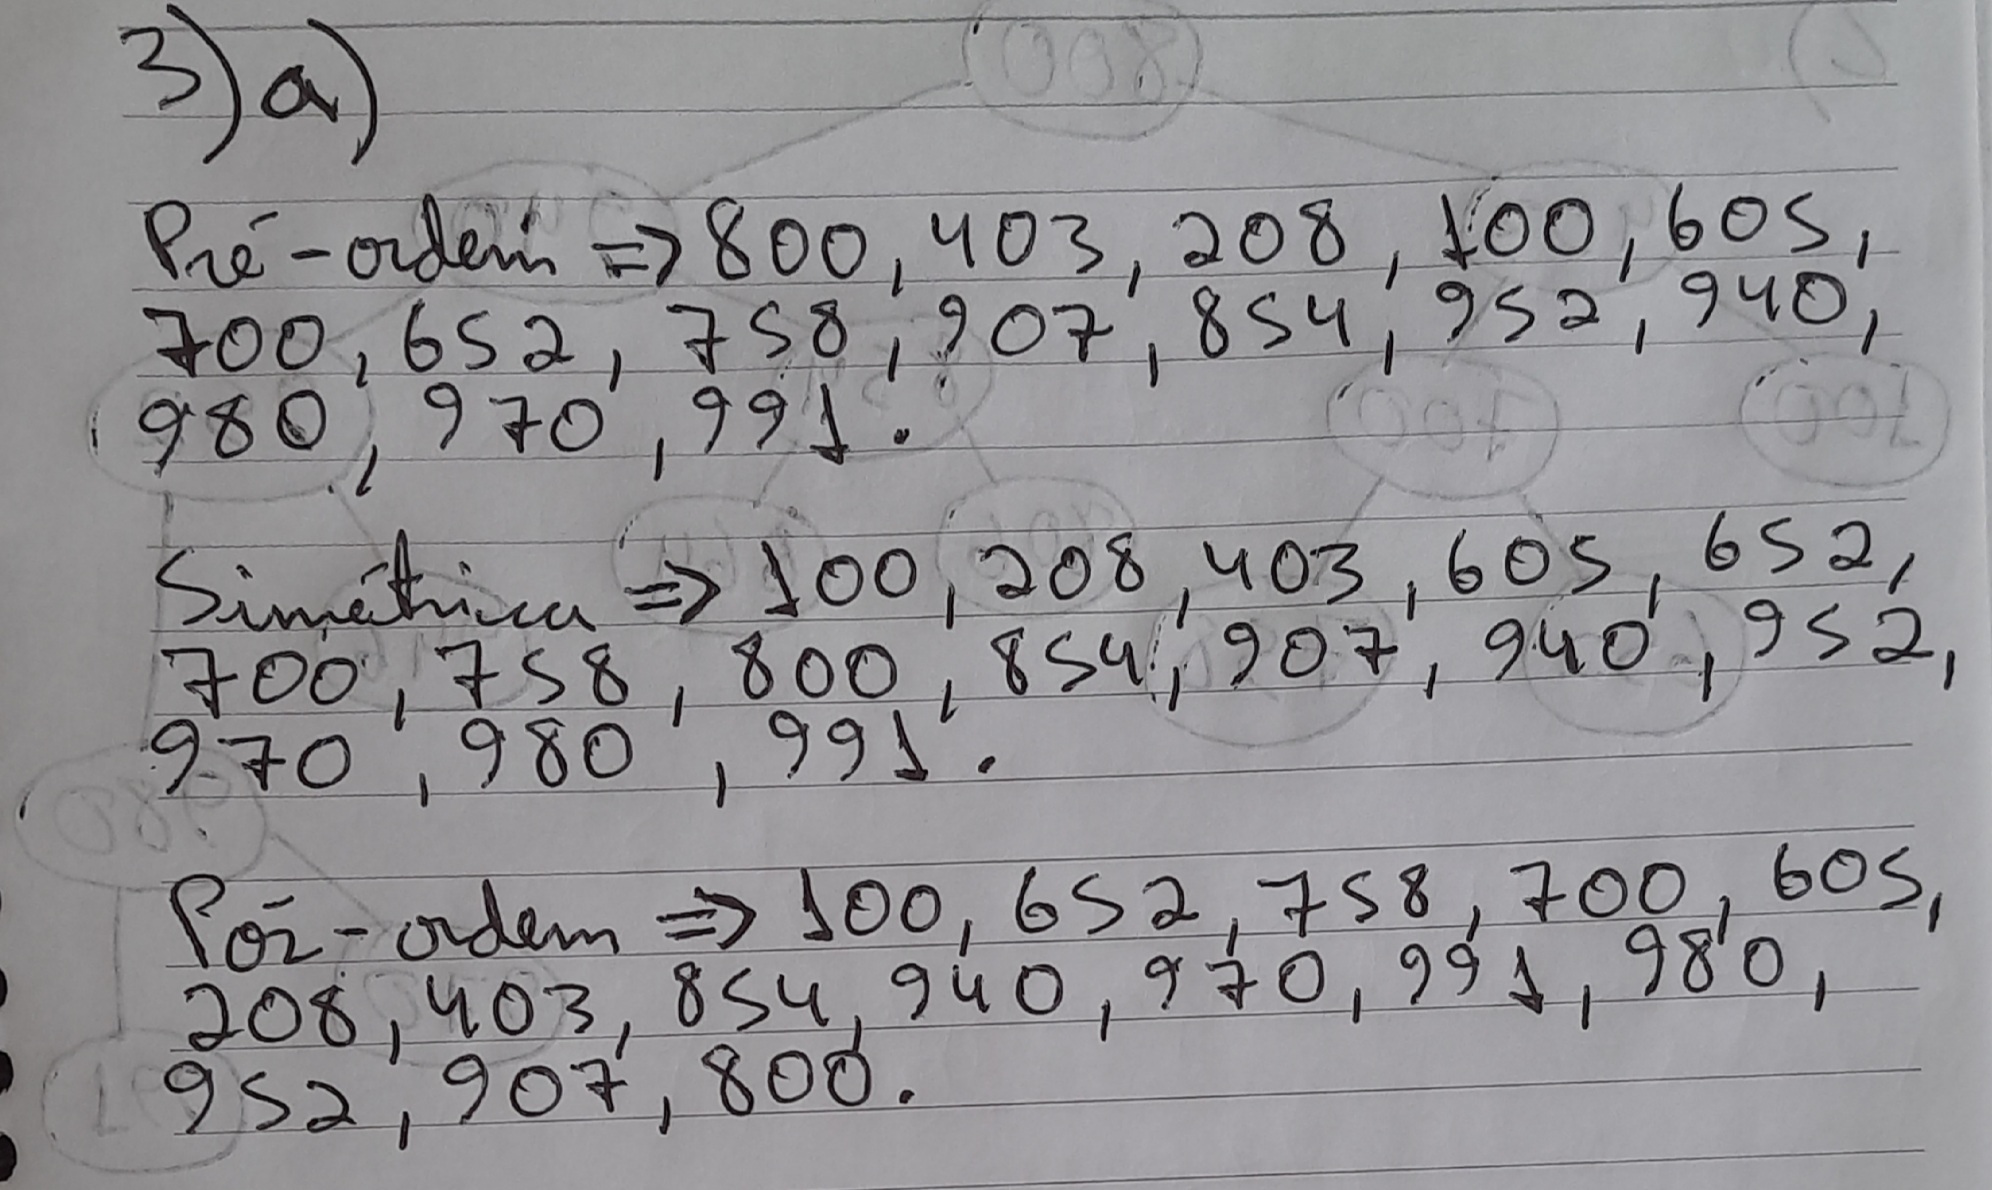 3) a)
Pré-ordem => 800, 403, 208, 100, 605,
700, 652, 758, 907, 854, 952, 940,
980, 970, 991.
Simétrica => 100, 208, 403, 605, 652,
700, 758, 800, 854, 907, 940, 952,
970, 980, 991.
Pós-ordem => 100, 652, 758, 700, 605,
208, 403, 854, 940, 970, 991, 980,
952, 907, 800.